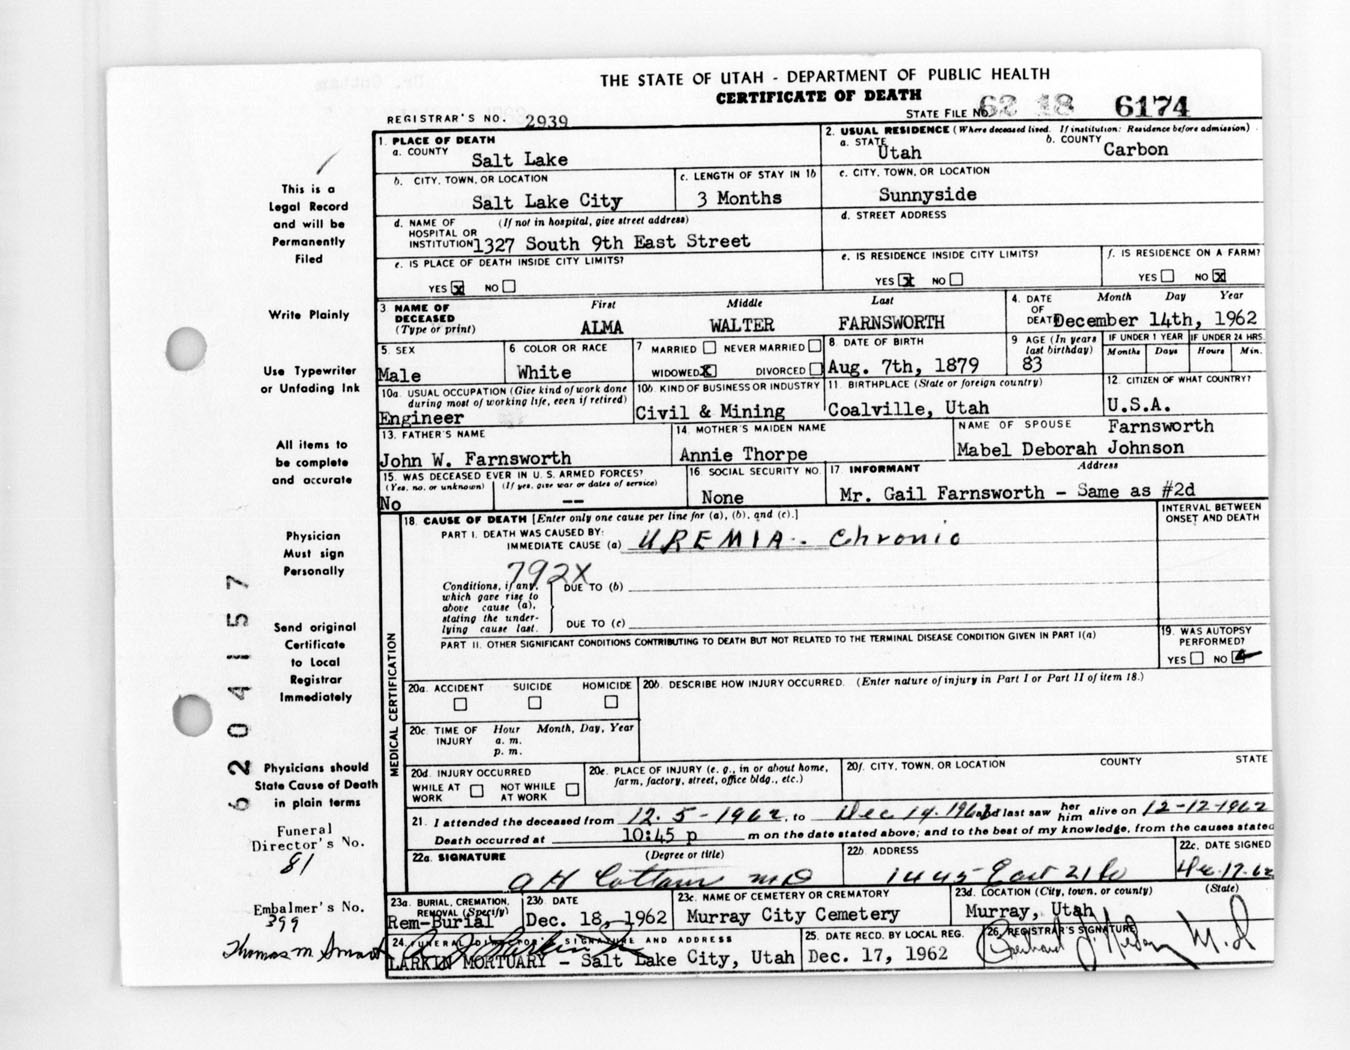 THE STATE OF UTAH - DEPARTMENT OF PUBLIC HEALTH
CERTIFICATE OF DEATH
REGISTRAR'S NO. 2939
STATE FILE NO. 62 18 6174
1. PLACE OF DEATH
a. COUNTY Salt Lake
2. USUAL RESIDENCE (Where deceased lived. If institution: Residence before admission)
a. STATE Utah b. COUNTY Carbon
b. CITY, TOWN, OR LOCATION Salt Lake City
c. LENGTH OF STAY IN 1b 3 Months
c. CITY, TOWN, OR LOCATION Sunnyside
d. NAME OF HOSPITAL OR INSTITUTION (If not in hospital, give street address) 1327 South 9th East Street
d. STREET ADDRESS
e. IS PLACE OF DEATH INSIDE CITY LIMITS?
YES X NO
e. IS RESIDENCE INSIDE CITY LIMITS?
YES X NO
f. IS RESIDENCE ON A FARM?
YES NO X
3 NAME OF DECEASED (Type or print)
First Middle Last
ALMA WALTER FARNSWORTH
4. DATE OF DEATH Month Day Year
December 14th, 1962
5. SEX Male
6 COLOR OR RACE White
7 MARRIED NEVER MARRIED
WIDOWED X DIVORCED
8. DATE OF BIRTH Aug. 7th, 1879
9 AGE (In years last birthday) 83
IF UNDER 1 YEAR Months Days
IF UNDER 24 HRS. Hours Min.
10a. USUAL OCCUPATION (Give kind of work done during most of working life, even if retired)
Engineer
10b. KIND OF BUSINESS OR INDUSTRY
Civil & Mining
11. BIRTHPLACE (State or foreign country)
Coalville, Utah
12. CITIZEN OF WHAT COUNTRY?
U.S.A.
13. FATHER'S NAME
John W. Farnsworth
14. MOTHER'S MAIDEN NAME
Annie Thorpe
NAME OF SPOUSE Farnsworth
Mabel Deborah Johnson
15. WAS DECEASED EVER IN U. S. ARMED FORCES?
(Yes, no, or unknown) (If yes, give war or dates of service)
No --
16. SOCIAL SECURITY NO.
None
17. INFORMANT Address
Mr. Gail Farnsworth - Same as #2d
18. CAUSE OF DEATH [Enter only one cause per line for (a), (b), and (c).]
INTERVAL BETWEEN ONSET AND DEATH
PART I. DEATH WAS CAUSED BY:
IMMEDIATE CAUSE (a) UREMIA - Chronic
792X
Conditions, if any, which gave rise to above cause (a), stating the underlying cause last.
DUE TO (b)
DUE TO (c)
PART II. OTHER SIGNIFICANT CONDITIONS CONTRIBUTING TO DEATH BUT NOT RELATED TO THE TERMINAL DISEASE CONDITION GIVEN IN PART I(a)
19. WAS AUTOPSY PERFORMED?
YES NO
MEDICAL CERTIFICATION
20a. ACCIDENT SUICIDE HOMICIDE
20b. DESCRIBE HOW INJURY OCCURRED. (Enter nature of injury in Part I or Part II of item 18.)
20c. TIME OF INJURY Hour Month, Day, Year
a. m.
p. m.
20d. INJURY OCCURRED
WHILE AT WORK NOT WHILE AT WORK
20e. PLACE OF INJURY (e. g., in or about home, farm, factory, street, office bldg., etc.)
20f. CITY, TOWN, OR LOCATION COUNTY STATE
21. I attended the deceased from 12-5-1962, to Dec 14, 1962 and last saw her him alive on 12-12-1962
Death occurred at 10:45 p m on the date stated above; and to the best of my knowledge, from the causes stated
22a. SIGNATURE (Degree or title)
A H Cottam MD
22b. ADDRESS
1445 East 21 So
22c. DATE SIGNED
Dec. 17-62
23a. BURIAL, CREMATION, REMOVAL (Specify)
Rem-Burial
23b. DATE
Dec. 18, 1962
23c. NAME OF CEMETERY OR CREMATORY
Murray City Cemetery
23d. LOCATION (City, town, or county) (State)
Murray, Utah
24. FUNERAL DIRECTOR'S SIGNATURE AND ADDRESS
LARKIN MORTUARY - Salt Lake City, Utah
25. DATE RECD. BY LOCAL REG.
Dec. 17, 1962
26. REGISTRAR'S SIGNATURE
This is a
Legal Record
and will be
Permanently
Filed
Write Plainly
Use Typewriter
or Unfading Ink
All items to
be complete
and accurate
Physician
Must sign
Personally
Send original
Certificate
to Local
Registrar
Immediately
Physicians should
State Cause of Death
in plain terms
Funeral
Director's No.
81
Embalmer's No.
399
Thomas M Smart
6204157